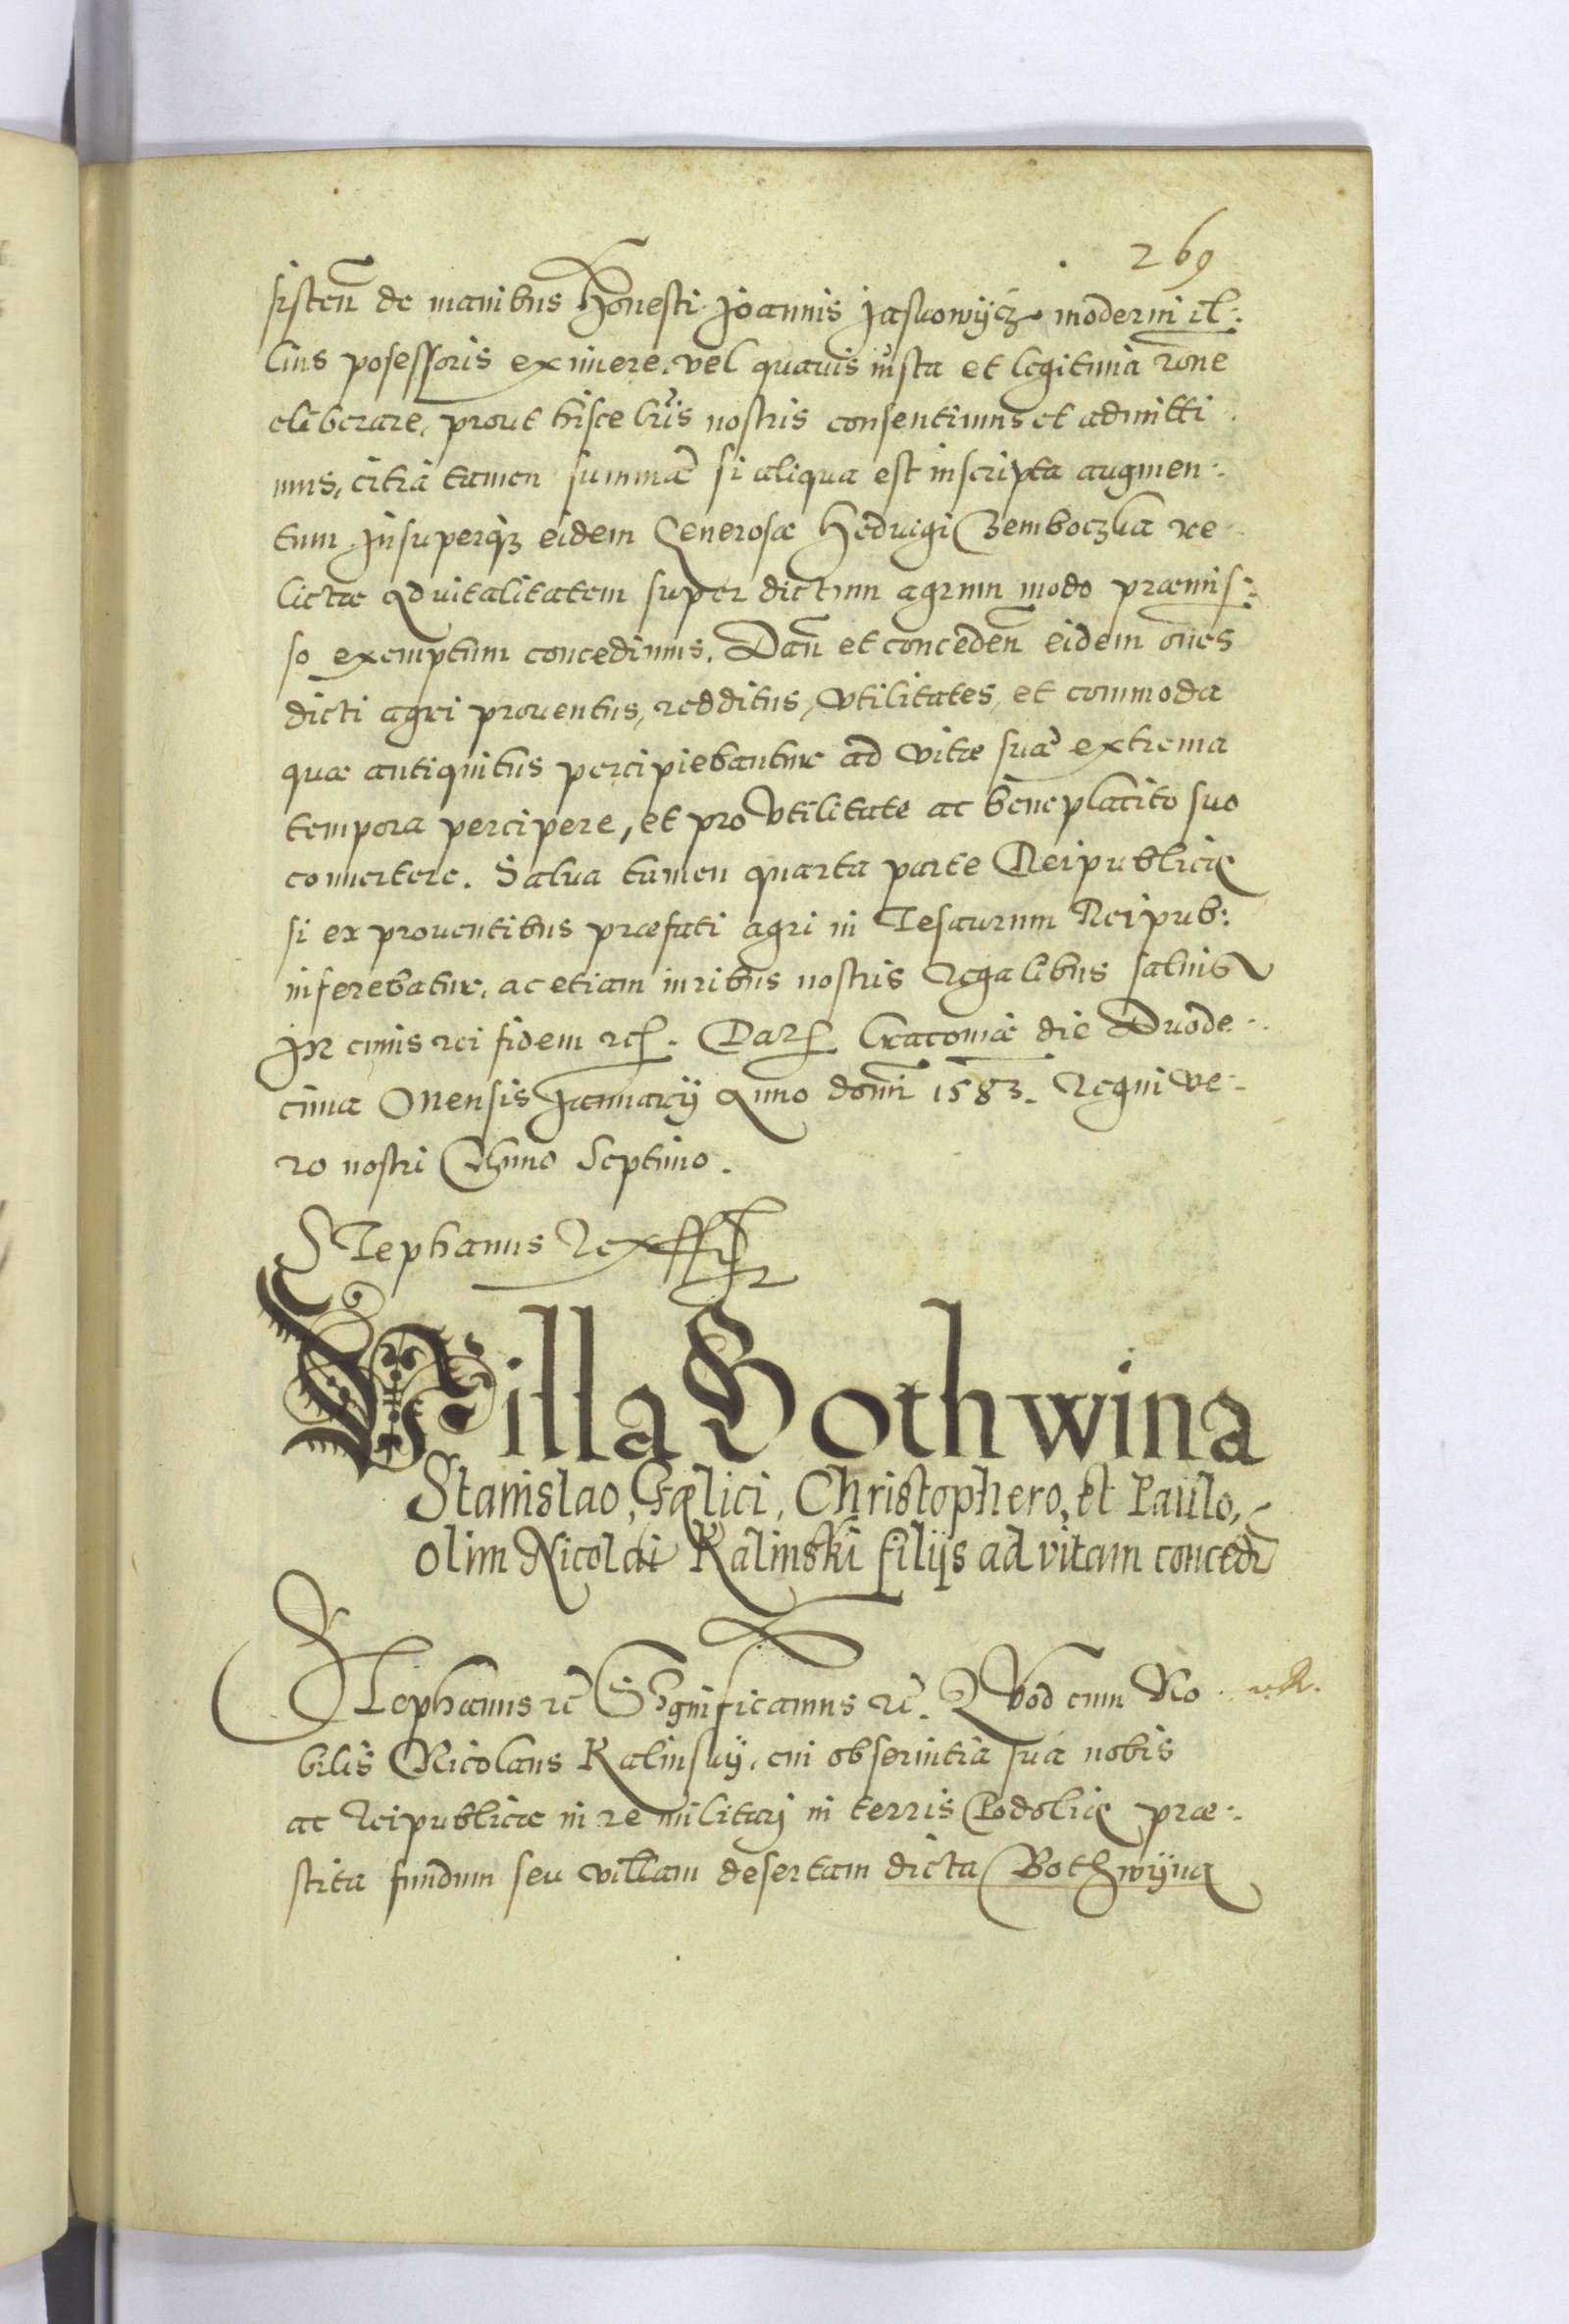 269
sisteñ de manibus Honesti Joannis Jaskowÿcz moderni il:
lius posessoris eximere. vel quauis iusta et legitima rõne
eliberare, prout hisce lr̃is nostris consentimus et admitti
mus, citra tamen summæ si aliqua est inscripta augmen:
tum. Insuperq3 eidem Generosæ Hedvigi Bemboczka re
lictæ Aduitalitatem super dictum agrum modo præmis:
so exemptum concedimus. Dañ et conceden̄ eidem om̃es
dicti agri prouentus, redditus, Vtilitates, et commoda
quæ antiquitus percipiebantur ad vitæ suæ extrema
tempora percipere, et pro Vtilitate ac beneplacito suo
conuertere. Salua tamen quarta parte Reipublicæ
si ex prouentibus præfati agri in Tesaurum Reipub:
inferebatur, ac etiam iuribus nostris Regalibus saluis
In cuius rei fidem etc. Dat. Cracouiæ die Duode
cima Mensis Januarÿ Anno domi 1583. Regni ve
ro nostri Anno Septimo.
Stephanus Rex
Villa Bothwina
Stanislao, Fælici, Christophero, et Paulo,
olim Nicolai Kalinski filijs ad vitam concedi
Stephanus etc Significamus etc. Quod cum No
bilis Nicolaus Kalinskÿ, cui ob seruitia sua nobis
ac Reipublicæ in re militari in terris Podoliæ præ:
stita fundum seu villam desertam dicta Bothwÿna